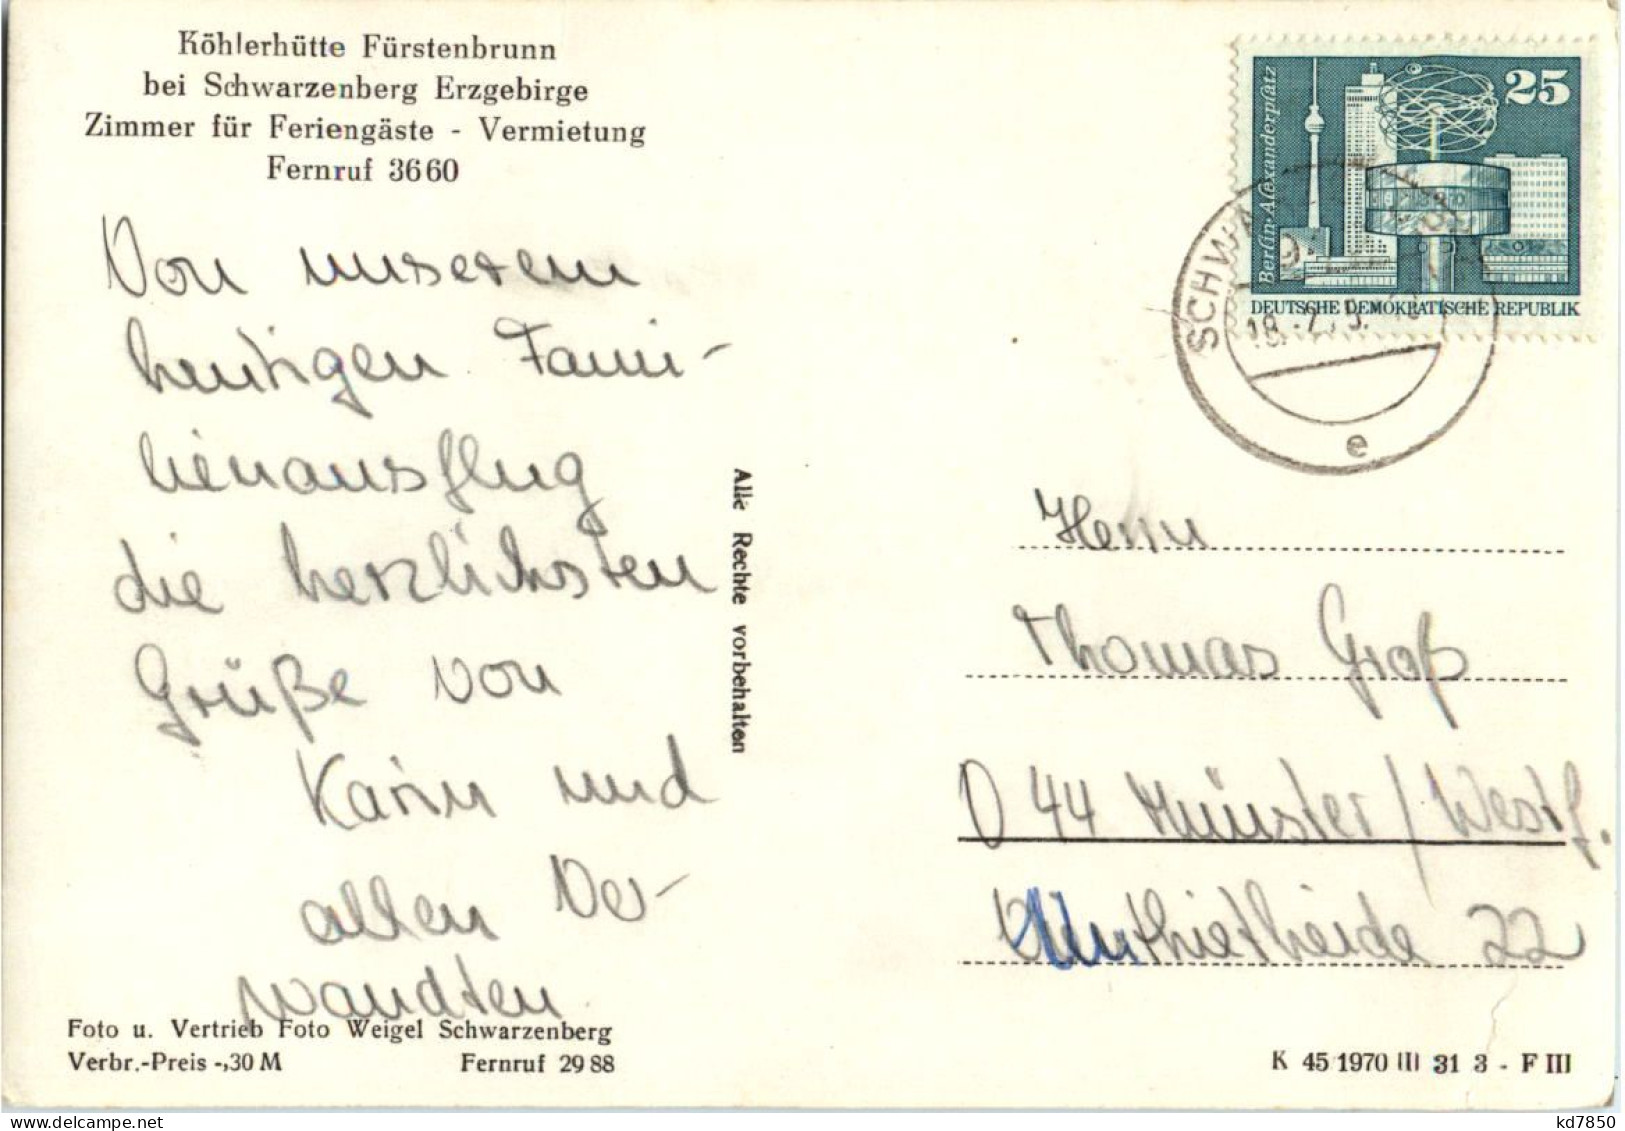 Köhlerhütte Fürstenbrunn
bei Schwarzenberg Erzgebirge
Zimmer für Feriengäste - Vermietung
Fernruf 3660
Von unserem
heutigen Fami-
lienausflug
die herzlichsten
Grüße von
Karin und
allen Ver-
wandten
Foto u. Vertrieb Foto Weigel Schwarzenberg
Verbr.-Preis -,30 M Fernruf 2988
Alle Rechte vorbehalten
25
Berlin-Alexanderplatz
DEUTSCHE DEMOKRATISCHE REPUBLIK
e
Herrn
Thomas Groß
D 44 Münster/Westf.
22
K 45 1970 III 31 3 - F III
kd7850